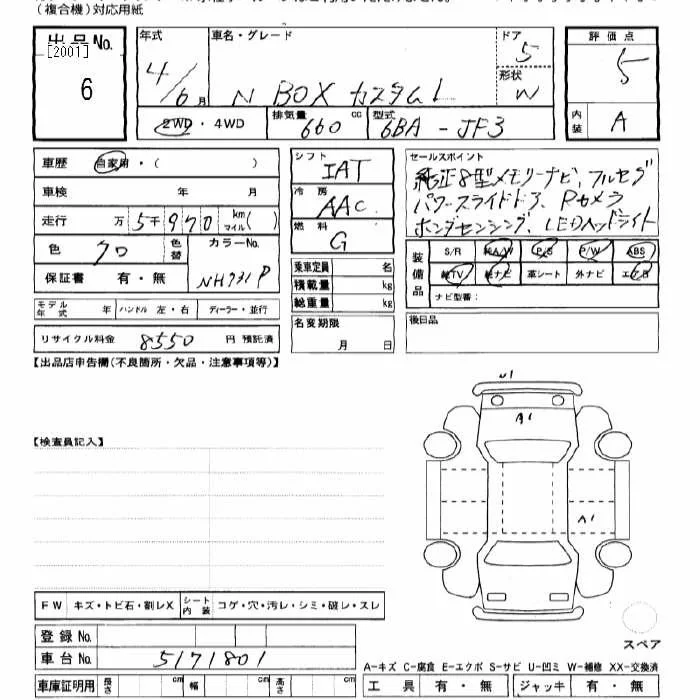 (複合機)対応用紙
出品No.
[2001]
6
年式
4/6月
車名・グレード
N BOX カスタム L
ドア
5
形状
W
評価点
5
内装
A
2WD・4WD
排気量
660 cc
型式
6BA-JF3
車歴 自家用・( )
車検 年 月
走行 万 5千970 km マイル( )
色 クロ 色替
カラーNo.
NH731P
保証書 有・無
シフト
IAT
冷房
AAC
燃料
G
乗車定員 名
積載量 kg
総重量 kg
名変期限
月 日
セールスポイント
純正8型メモリーナビ、フルセグ
パワースライドドア、Pカメラ
ホンダセンシング、LEDヘッドライト
装備品
S/R 純A/W P/S P/W ABS
純TV 純ナビ 革シート 外ナビ エアB
ナビ型番:
後日品
モデル年式 年 ハンドル 左・右 ディーラー・並行
リサイクル料金 8550 円 預託済
【出品店申告欄(不良箇所・欠品・注意事項等)】
【検査員記入】
U1
A1
A1
スペア
FW キズ・トビ石・割レX シート内装 コゲ・穴・汚レ・シミ・破レ・スレ
登録No.
車台No. 5171801
車庫証明用 長さ cm 幅 cm 高さ cm
A-キズ C-腐食 E-エクボ S-サビ U-凹ミ W-補修 XX-交換済
工具 有・無 ジャッキ 有・無